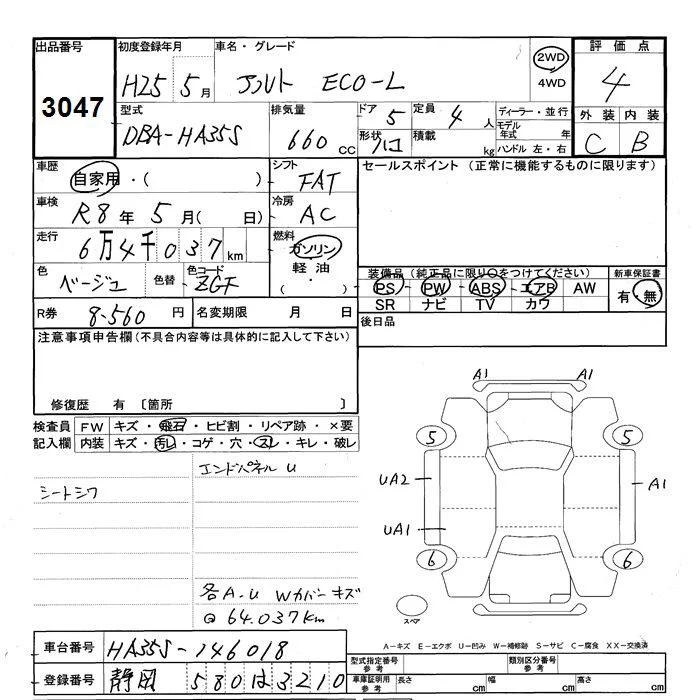 出品番号
3047
初度登録年月
H25 5月
車名・グレード
アルト ECO-L
2WD
4WD
評価点
4
型式
DBA-HA35S
排気量
660 cc
ドア 5
定員 4人
形状 ハコ
積載 kg
ディーラー・並行
モデル年式 年
ハンドル 左・右
外装 内装
C B
車歴
自家用・( )
シフト
FAT
セールスポイント (正常に機能するものに限ります)
車検
R8年 5月( 日)
冷房
AC
走行
6万4千037km
燃料
ガソリン
軽油
( ・ )
色
ベージュ
色替
色コード
ZGF
装備品(純正品に限り○をつけてください)
PS PW ABS エアB AW
SR ナビ TV カワ
新車保証書
有・無
R券 8-560円
名変期限 月 日
後日品
注意事項申告欄(不具合内容等は具体的に記入して下さい)
修復歴 有 〔箇所 〕
検査員記入欄
FW キズ・飛石・ヒビ割・リペア跡・×要
内装 キズ・汚レ・コゲ・穴・スレ・キレ・破レ
エンドパネル U
シートシワ
各A.U Wカバーキズ
@ 64.037km
A1 A1
5 5
UA2 A1
UA1
6 6
スペア
A-キズ E-エクボ U-凹み W-補修跡 S-サビ C-腐食 XX-交換済
車台番号 HA35S-146018
登録番号 静岡 580は3210
型式指定番号 参考
類別区分番号 参考
車庫証明用 参考
長さ cm
幅 cm
高さ cm